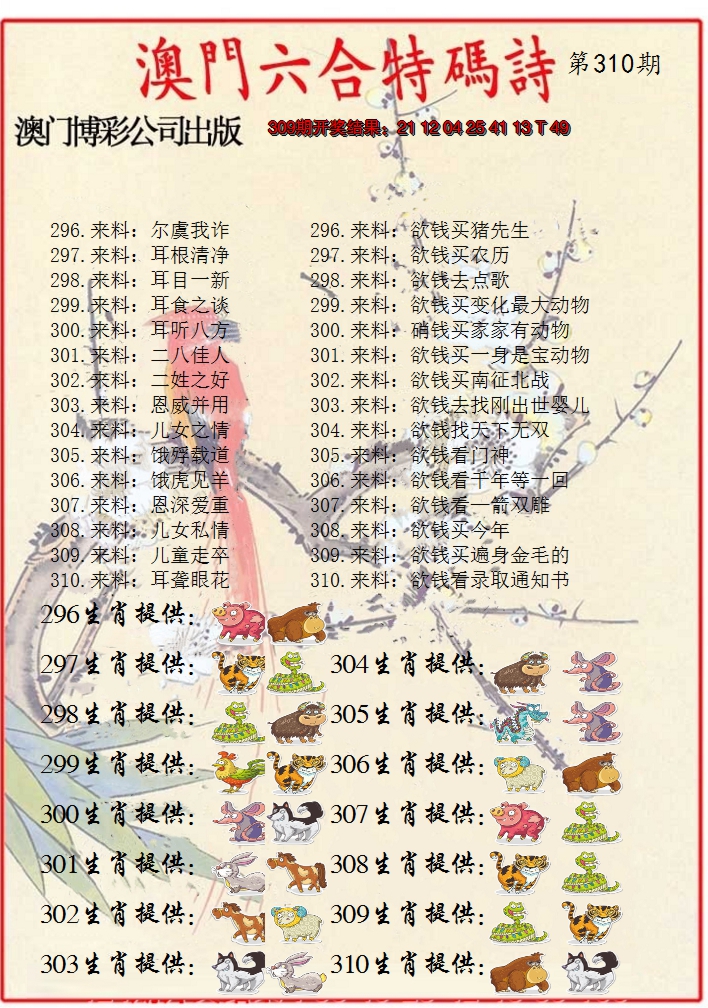 澳門六合特碼詩
第310期
澳门博彩公司出版
309期开奖结果：21 12 04 25 41 13 T 49
296.来料：尔虞我诈
297.来料：耳根清净
298.来料：耳目一新
299.来料：耳食之谈
300.来料：耳听八方
301.来料：二八佳人
302.来料：二姓之好
303.来料：恩威并用
304.来料：儿女之情
305.来料：饿殍载道
306.来料：饿虎见羊
307.来料：恩深爱重
308.来料：儿女私情
309.来料：儿童走卒
310.来料：耳聋眼花
296.来料：欲钱买猪先生
297.来料：欲钱买农历
298.来料：欲钱去点歌
299.来料：欲钱买变化最大动物
300.来料：硝钱买家家有动物
301.来料：欲钱买一身是宝动物
302.来料：欲钱买南征北战
303.来料：欲钱去找刚出世婴儿
304.来料：欲钱找天下无双
305.来料：欲钱看门神
306.来料：欲钱看千年等一回
307.来料：欲钱看一箭双雕
308.来料：欲钱买今年
309.来料：欲钱买遍身金毛的
310.来料：欲钱看录取通知书
296生肖提供：
297生肖提供：
298生肖提供：
299生肖提供：
300生肖提供：
301生肖提供：
302生肖提供：
303生肖提供：
304生肖提供：
305生肖提供：
306生肖提供：
307生肖提供：
308生肖提供：
309生肖提供：
310生肖提供：